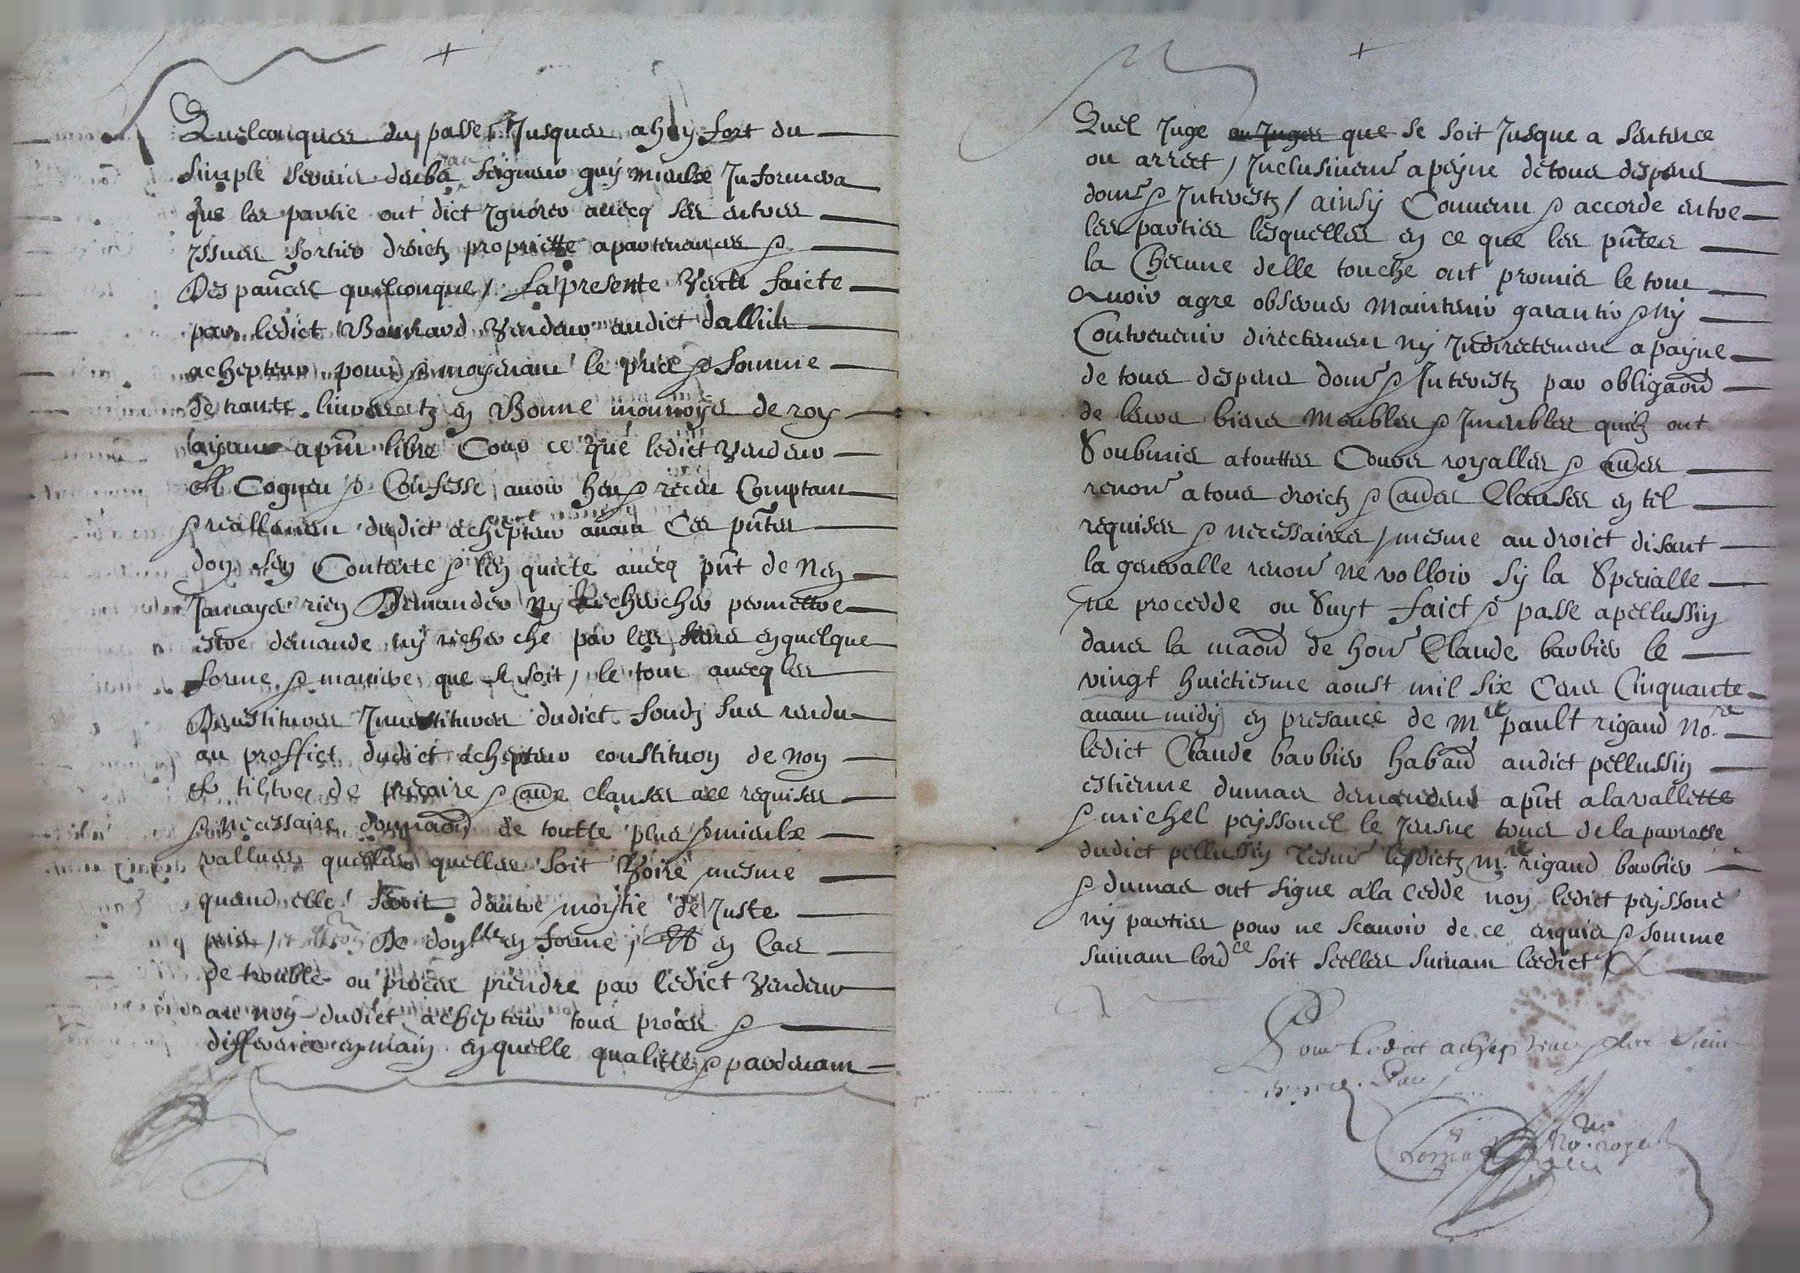 Quelconques du passe Jusques a huy fort du
simple servis de sa Seigneur quy mieulx Informera
que les partie ont dict Ignorer avecq ses entrees
yssues sorties droictz propriette apartenances &
Despances quelconque / La presente vente faicte
par ledict vendeur audict dallier
achepteur pour & moyenant le priee & somme
de trante livres tz en Bonne monnoye de roy
ayant a pnt libre Cour ce que ledict vendeur
A Cogneu & Confesse avoir heu & receu Comptant
& reallement dudict achepteur avant Ces pntes
don sen Contente & len quicte avecq pnt de nen
Jamays rien Demander ny Rechercher permettre
estre demande ny recherche par les siens en quelque
forme & maniere que se soit / le tout avecq les
Devestitures Investitures dudict fondz sus vendu
au proffict dudict achepteur constituon de non
& tiltre de precaire & aues clauses ace requises
& necessaire donnaon de toutte plus & mieulx
vallues quelles quelles soit Voire mesme
quand elle seroit dautre moytie de Juste
pris / De en forme / Et en Cas
de trouble ou proces prendre par ledict vendeur
au nom dudict achepteur tous proces &
differances en main en quelle qualitte & pardevant
Quel Juge ou Juges que se soit Jusque a sentence
ou arrest / Inclusivemt a peyne de tous despens
doms & Interestz / ainsy Convenu & accorde entre
les parties lesquelles en ce que les pntes
la Checune delle touche ont promis le tout
avoir agre observer maintenir garantir & ny
Contrevenir directement ny Indirectement a payne
de tous despens doms & Interestz par obligaon
de leurs biens meubles & Imeubles quilz ont
Soubmis a touttes Cours royalles & aues
renon a tous droictz & aues Clauses en tel
requises & necessaires / mesme au droict disant
la generalle renon ne valloir sy la Specialle
ne procedde ou suyt faict & passe a pellussin
dans la maon de hon Claude barbier le
vingt huictiesme aoust mil six Cens Cinquante
avant midy en presance de Mre pault rigaud nore
ledict Claude barbier habant audict pellussin
estienne dumas demeudant a pnt a la vallette
& michel peyssonel le Jeusne tous de la parrosse
dudict pellussin tesm lesdictz Mre rigaud barbier
& dumas ont signe a la cedde non ledict peyssonel
ny parties pour ne scavoir de ce enquis & somme
suivant lordce soit scelles suivant leedict
Pour Ledict achepteur
no. royal